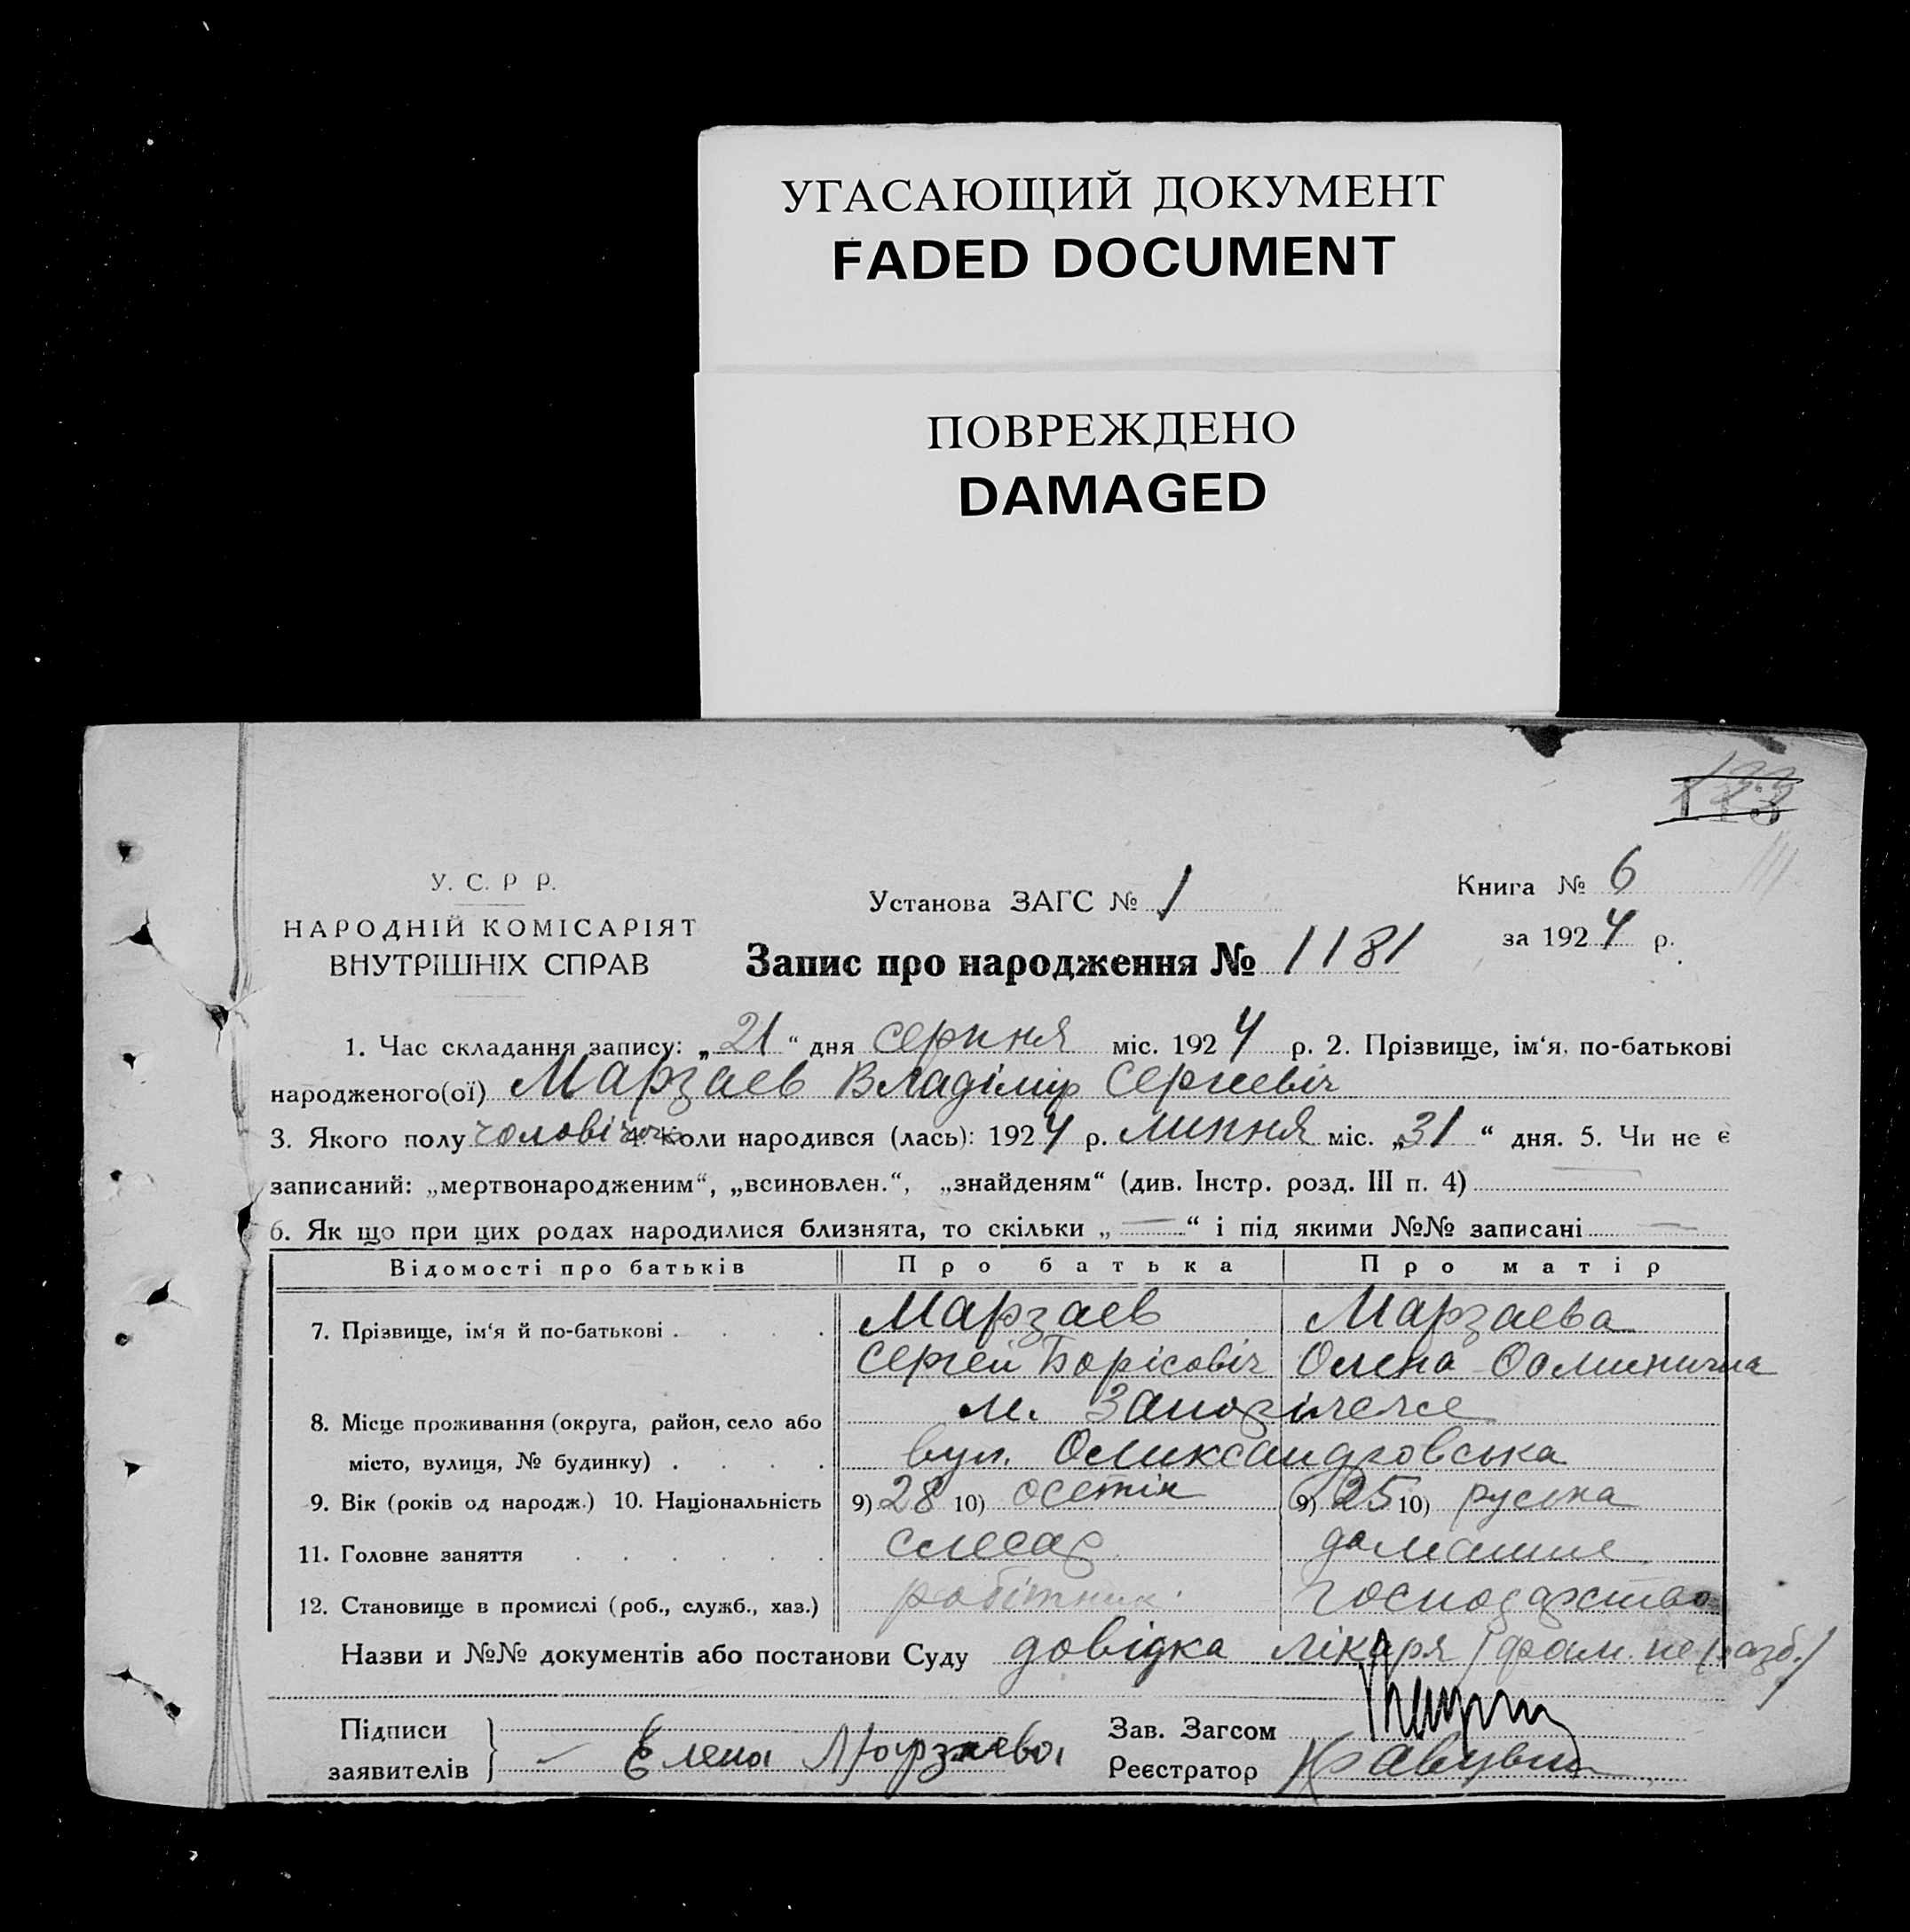 УГАСАЮЩИЙ ДОКУМЕНТ
FADED DOCUMENT
ПОВРЕЖДЕНО
DAMAGED
У. С. Р Р.
НАРОДНІЙ КОМІСАРІЯТ
ВНУТРІШНІХ СПРАВ
Установа ЗАГС № 1
Книга № 6
за 1924 р.
Запис про народження № 1181
1. Час складання запису: „21“ дня серпня міс. 1924 р. 2. Прізвище, ім‘я, по-батькові
народженого(ої) Марзаев Владімір Сергеевіч
3. Якого полу чоловічого 4. Коли народився (лась): 1924 р. липня міс. „31“ дня. 5. Чи не є
записаний: „мертвонародженим“, „всиновлен.“, „знайденям“ (див. Інстр. розд. III п. 4)
6. Як що при цих родах народилися близнята, то скільки „—“ і під якими №№ записані —
Відомості про батьків Про батька Про матір
7. Прізвище, ім‘я й по-батькові Марзаев Марзаева
Сергей Борісовіч Олена
8. Місце проживання (округа, район, село або м. Запоріжже
місто, вулиця, № будинку) вул. Олександровська
9. Вік (років од народж.) 10. Національність 9) 28 10) осетін 9) 25 10) руська
11. Головне заняття слесар домашнє
12. Становище в промислі (роб., служб., хаз.) робітник. господарство
Назви и №№ документів або постанови Суду довідка лікаря /фам. не разб./
Підписи
заявителів
Елена Марзаева
Зав. Загсом
Реєстратор